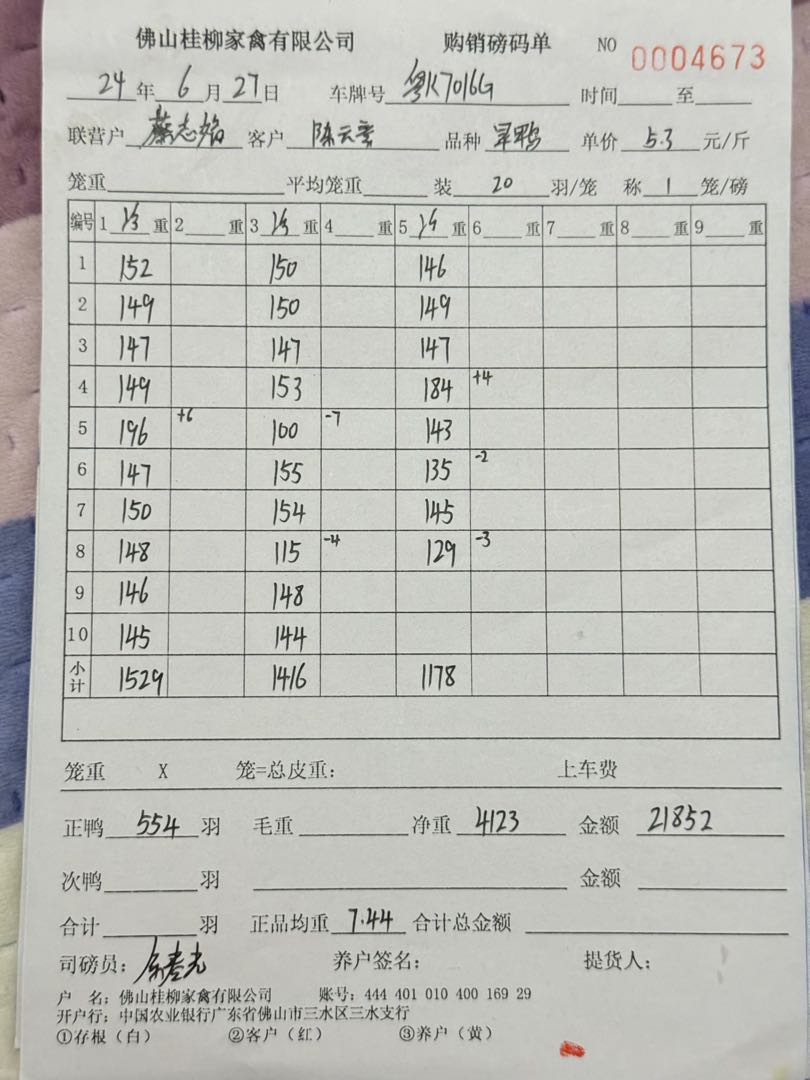 佛山桂柳家禽有限公司 购销磅码单 NO 0004673
24年 6月27日 车牌号 粤K7016G 时间____至____
联营户 蔡志 客户 陈云 品种 鸭 单价 5.3 元/斤
笼重____平均笼重____装 20 羽/笼 称 1 笼/磅
编号 1 重 2 重 3 重 4 重 5 重 6 重 7 重 8 重 9 重
1 152 150 146
2 149 150 149
3 147 147 147
4 149 153 184 +4
5 196 +6 100 -7 143
6 147 155 135 -2
7 150 154 145
8 148 115 -4 129 -3
9 146 148
10 145 144
小计 1529 1416 1178
笼重 X 笼=总皮重: 上车费
正鸭 554 羽 毛重____净重 4123 金额 21852
次鸭____羽 ____ 金额____
合计____羽 正品均重 7.44 合计总金额____
司磅员: 养户签名: 提货人:
户 名: 佛山桂柳家禽有限公司 账号: 444 401 010 400 169 29
开户行: 中国农业银行广东省佛山市三水区三水支行
①存根(白) ②客户(红) ③养户(黄)